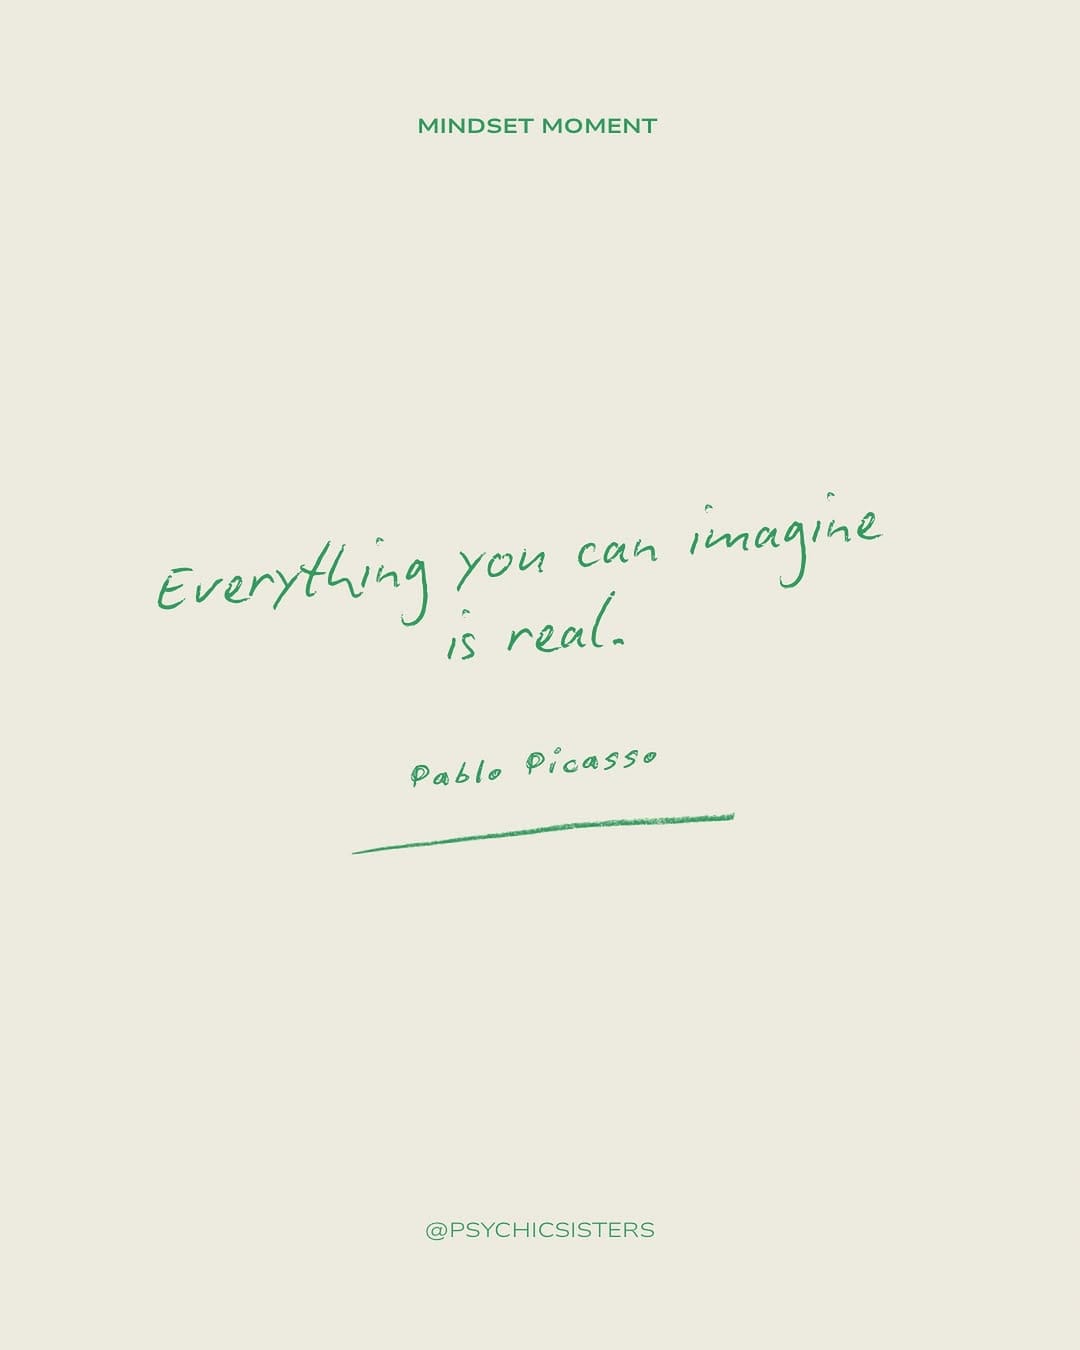 MINDSET MOMENT
Everything you can imagine
is real.
Pablo Picasso
@PSYCHICSISTERS